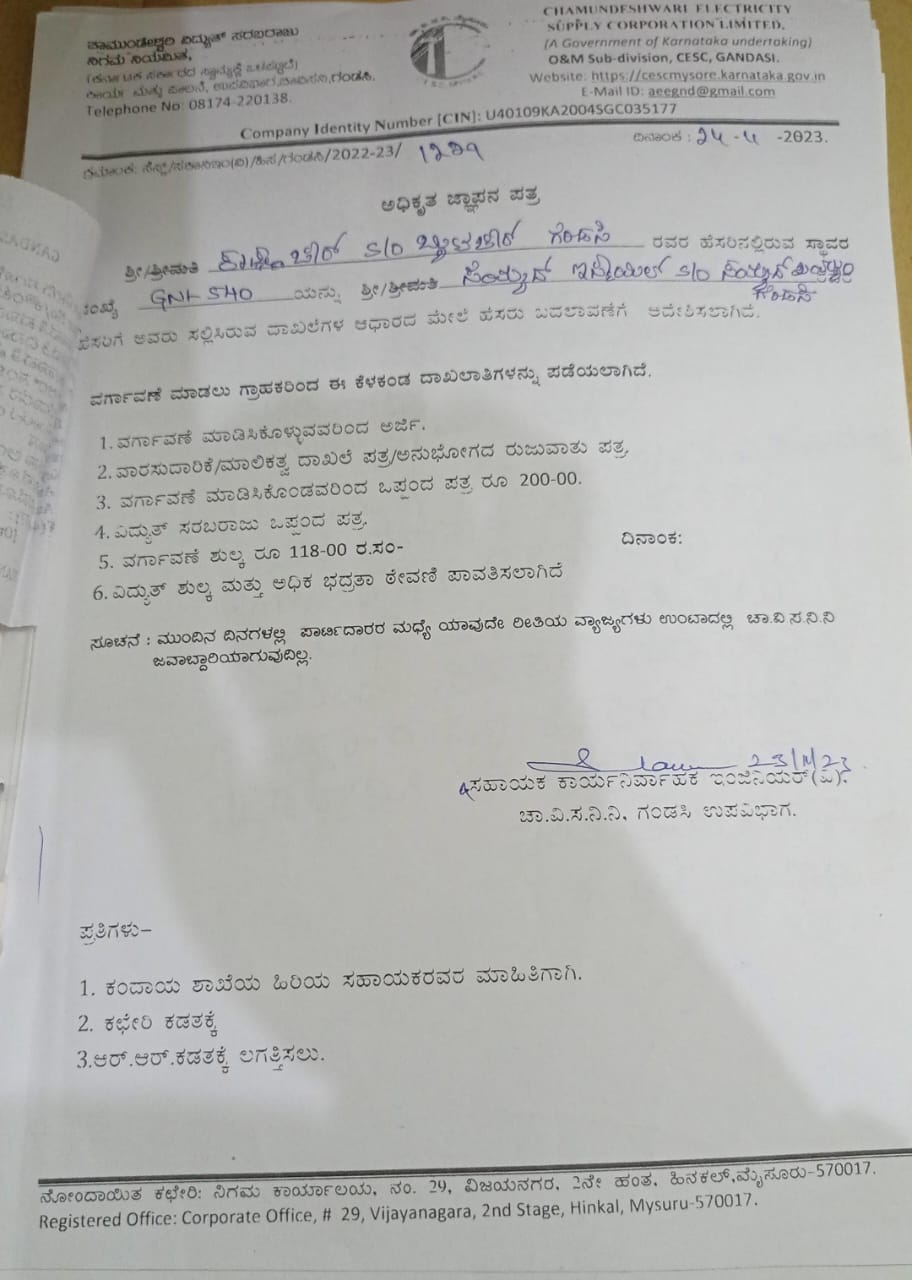 ಚಾಮುಂಡೇಶ್ವರಿ ವಿದ್ಯುತ್ ಸರಬರಾಜು
ನಿಗಮ ನಿಯಮಿತ,
(ಕರ್ನಾಟಕ ಸರ್ಕಾರದ ಸ್ವಾಮ್ಯಕ್ಕೆ ಒಳಪಟ್ಟಿದೆ)
ಕಾರ್ಯ ಮತ್ತು ಪಾಲನೆ, ಉಪವಿಭಾಗ,ಚಾವಿಸನಿ,ಗಂಡಸಿ.
Telephone No: 08174-220138.
CHAMUNDESHWARI ELECTRICITY
SUPPLY CORPORATION LIMITED.
(A Government of Karnataka undertaking)
O&M Sub-division, CESC, GANDASI.
Website: https://cescmysore.karnataka.gov.in
E-Mail ID: aeegnd@gmail.com
Company Identity Number [CIN]: U40109KA2004SGC035177
/ಗಂಡಸಿ/2022-23/ ದಿನಾಂಕ : 24-4 -2023.
ಅಧಿಕೃತ ಜ್ಞಾಪನ ಪತ್ರ
ಶ್ರೀ/ಶ್ರೀಮತಿ S/O ಗಂಡಸಿ ರವರ ಹೆಸರಿನಲ್ಲಿರುವ ಸ್ಥಾವರ
ಸಂಖ್ಯೆ ಯನ್ನು ಶ್ರೀ/ಶ್ರೀಮತಿ ಸಯ್ಯದ್ ಇಸ್ಮಾಯಿಲ್ S/O ಸಯ್ಯದ್
ಗಂಡಸಿ
ಹೆಸರಿಗೆ ಅವರು ಸಲ್ಲಿಸಿರುವ ದಾಖಲೆಗಳ ಆಧಾರದ ಮೇಲೆ ಹೆಸರು ಬದಲಾವಣೆಗೆ ಆದೇಶಿಸಲಾಗಿದೆ.
ವರ್ಗಾವಣೆ ಮಾಡಲು ಗ್ರಾಹಕರಿಂದ ಈ ಕೆಳಕಂಡ ದಾಖಲಾತಿಗಳನ್ನು ಪಡೆಯಲಾಗಿದೆ.
1. ವರ್ಗಾವಣೆ ಮಾಡಿಸಿಕೊಳ್ಳುವವರಿಂದ ಅರ್ಜಿ.
2. ವಾರಸುದಾರಿಕೆ/ಮಾಲಿಕತ್ವ ದಾಖಲೆ ಪತ್ರ/ಅನುಭೋಗದ ರುಜುವಾತು ಪತ್ರ.
3. ವರ್ಗಾವಣೆ ಮಾಡಿಸಿಕೊಂಡವರಿಂದ ಒಪ್ಪಂದ ಪತ್ರ ರೂ 200-00.
4. ವಿದ್ಯುತ್ ಸರಬರಾಜು ಒಪ್ಪಂದ ಪತ್ರ.
5. ವರ್ಗಾವಣೆ ಶುಲ್ಕ ರೂ 118-00 ರ.ಸಂ- ದಿನಾಂಕ:
6. ವಿದ್ಯುತ್ ಶುಲ್ಕ ಮತ್ತು ಅಧಿಕ ಭದ್ರತಾ ಠೇವಣಿ ಪಾವತಿಸಲಾಗಿದೆ
ಸೂಚನೆ : ಮುಂದಿನ ದಿನಗಳಲ್ಲಿ ಪಾರ್ಟಿದಾರರ ಮಧ್ಯೆ ಯಾವುದೇ ರೀತಿಯ ವ್ಯಾಜ್ಯಗಳು ಉಂಟಾದಲ್ಲಿ ಚಾ.ವಿ.ಸ.ನಿ.ನಿ
ಜವಾಬ್ದಾರಿಯಾಗುವುದಿಲ್ಲ.
ಸಹಾಯಕ ಕಾರ್ಯನಿರ್ವಾಹಕ ಇಂಜಿನಿಯರ್(ವಿ).
ಚಾ.ವಿ.ಸ.ನಿ.ನಿ, ಗಂಡಸಿ ಉಪವಿಭಾಗ.
ಪ್ರತಿಗಳು–
1. ಕಂದಾಯ ಶಾಖೆಯ ಹಿರಿಯ ಸಹಾಯಕರವರ ಮಾಹಿತಿಗಾಗಿ.
2. ಕಛೇರಿ ಕಡತಕ್ಕೆ
3.ಆರ್.ಆರ್.ಕಡತಕ್ಕೆ ಲಗತ್ತಿಸಲು.
ನೋಂದಾಯಿತ ಕಛೇರಿ: ನಿಗಮ ಕಾರ್ಯಾಲಯ, ನಂ. 29, ವಿಜಯನಗರ, 2ನೇ ಹಂತ, ಹಿನಕಲ್,ಮೈಸೂರು-570017.
Registered Office: Corporate Office, # 29, Vijayanagara, 2nd Stage, Hinkal, Mysuru-570017.